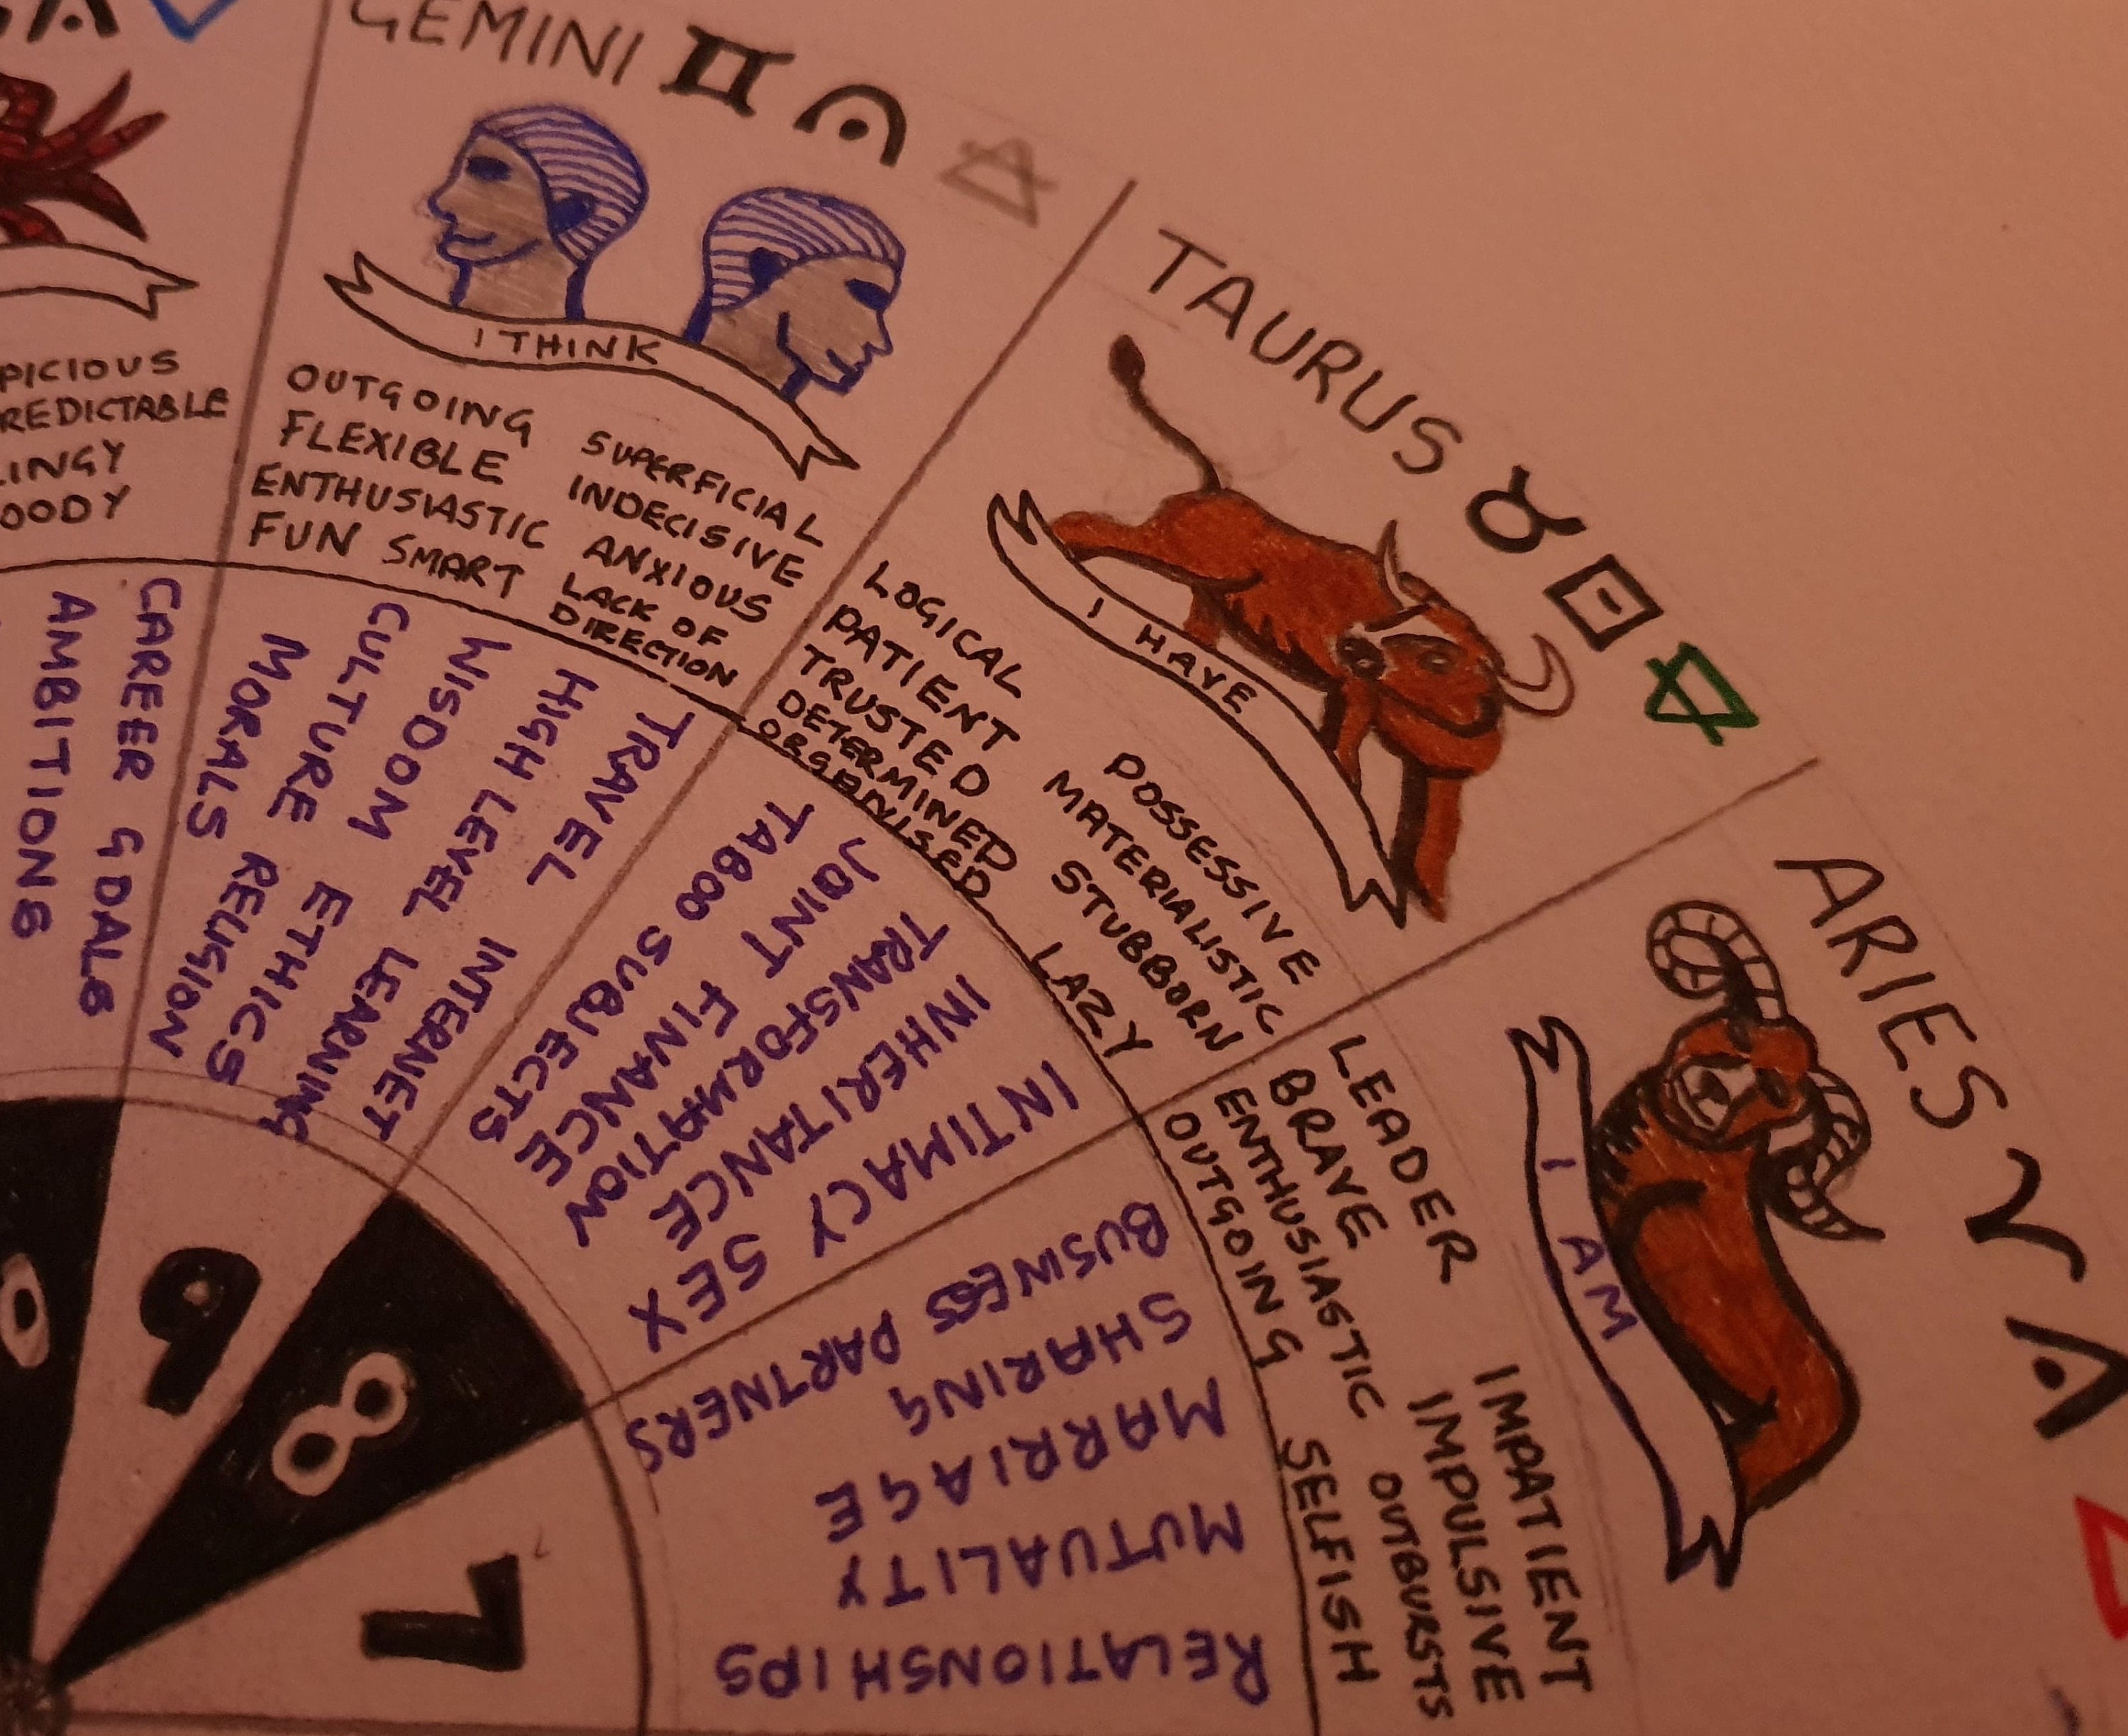 GEMINI ♊
I THINK
OUTGOING
FLEXIBLE
ENTHUSIASTIC
FUN SMART
SUPERFICIAL
INDECISIVE
ANXIOUS
LACK OF
DIRECTION
TAURUS ♉
I HAVE
LOGICAL
PATIENT
TRUSTED
DETERMINED
ORGANISED
POSSESSIVE
MATERIALISTIC
STUBBORN
LAZY
ARIES ♈
I AM
LEADER
BRAVE
ENTHUSIASTIC
OUTGOING
IMPATIENT
IMPULSIVE
OUTBURSTS
SELFISH
OODY
CAREER GOALS
AMBITIONS
TRAVEL INTERNET
HIGH LEVEL LEARNING
WISDOM ETHICS
CULTURE RELIGION
MORALS
INTIMACY SEX
INHERITANCE
TRANSFORMATION
JOINT FINANCE
TABOO SUBJECTS
BUSINESS PARTNERS
SHARING
MARRIAGE
MUTUALITY
RELATIONSHIPS
0
9
8
7